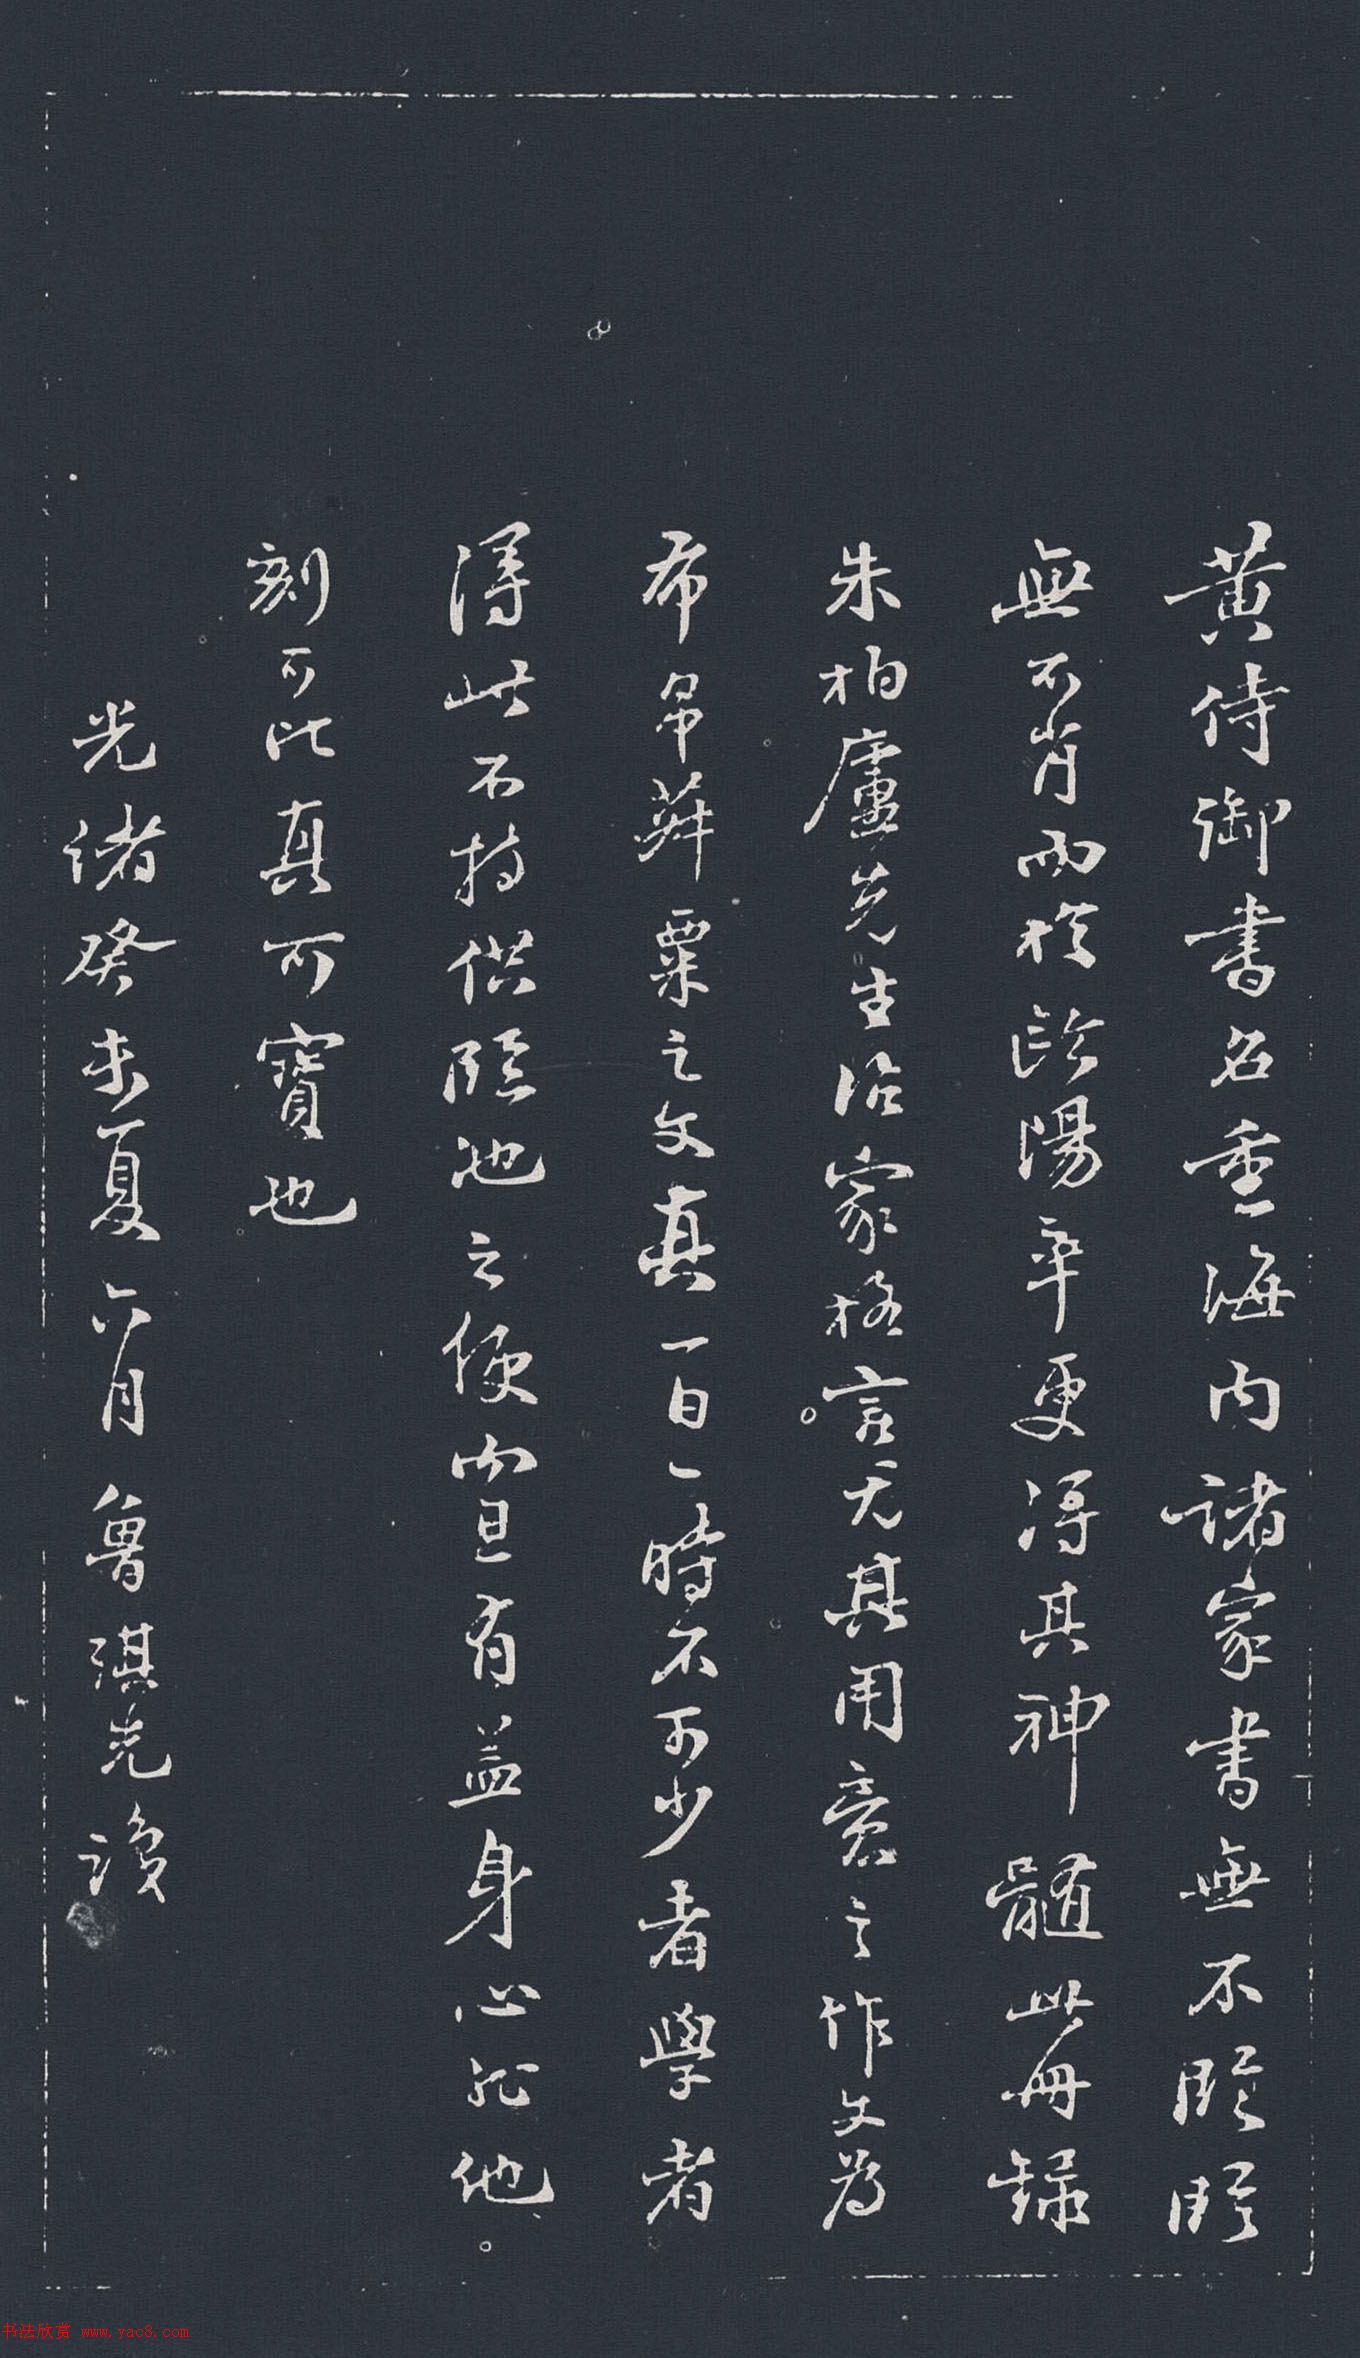 黃侍御書名重海內諸家書無不臨臨
無不肖而於歐陽率更得其神髓此冊錄
朱柏廬先生治家格言尤其用意之作文爲
布帛菽粟之文真一日一時不可少者學者
得此不特供臨池之便而且有益身心非他
刻可比真可寶也
光緒癸未夏六月魯琪光識
书法欣赏 www.yac8.com